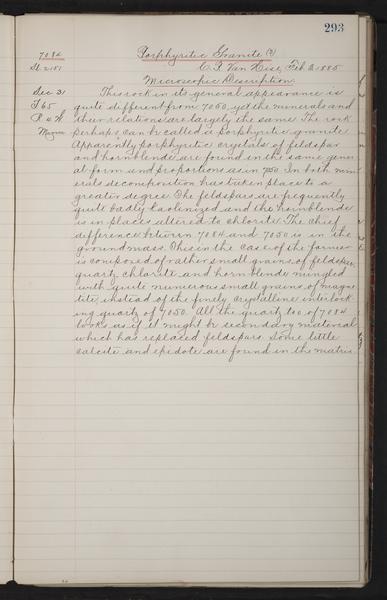 293
7084 Porphyritic Granite (?)
Sl. 2151 C. R. Van Hise, Feb 2, 1885
Microscopic Description
Sec 31 This rock in its general appearance is
T 65 quite different from 7050, yet the minerals and
R 4 W their relations are largely the same. The rock
perhaps can be called a porphyritic granite.
Apparently porphyritic crystals of feldspar
and hornblende are found in the same gener
al form and proportions as in 7050. In both min
erals decomposition has taken place to a
greater degree. The feldspars are frequently
quite badly kaolinized and the hornblende
is in places altered to chlorite. The chief
difference between 7084 and 7050 is in the
groundmass. This in the case of the former
is composed of rather small grains of feldspar,
quartz, chlorite and hornblende mingled
with quite numerous small grains of magne
tite, instead of the finely crystalline interlock
ing quartz of 7050. All the quartz too of 7084
looks as if it might be secondary material
which has replaced feldspars. Some little
calcite and epidote are found in the matrix.